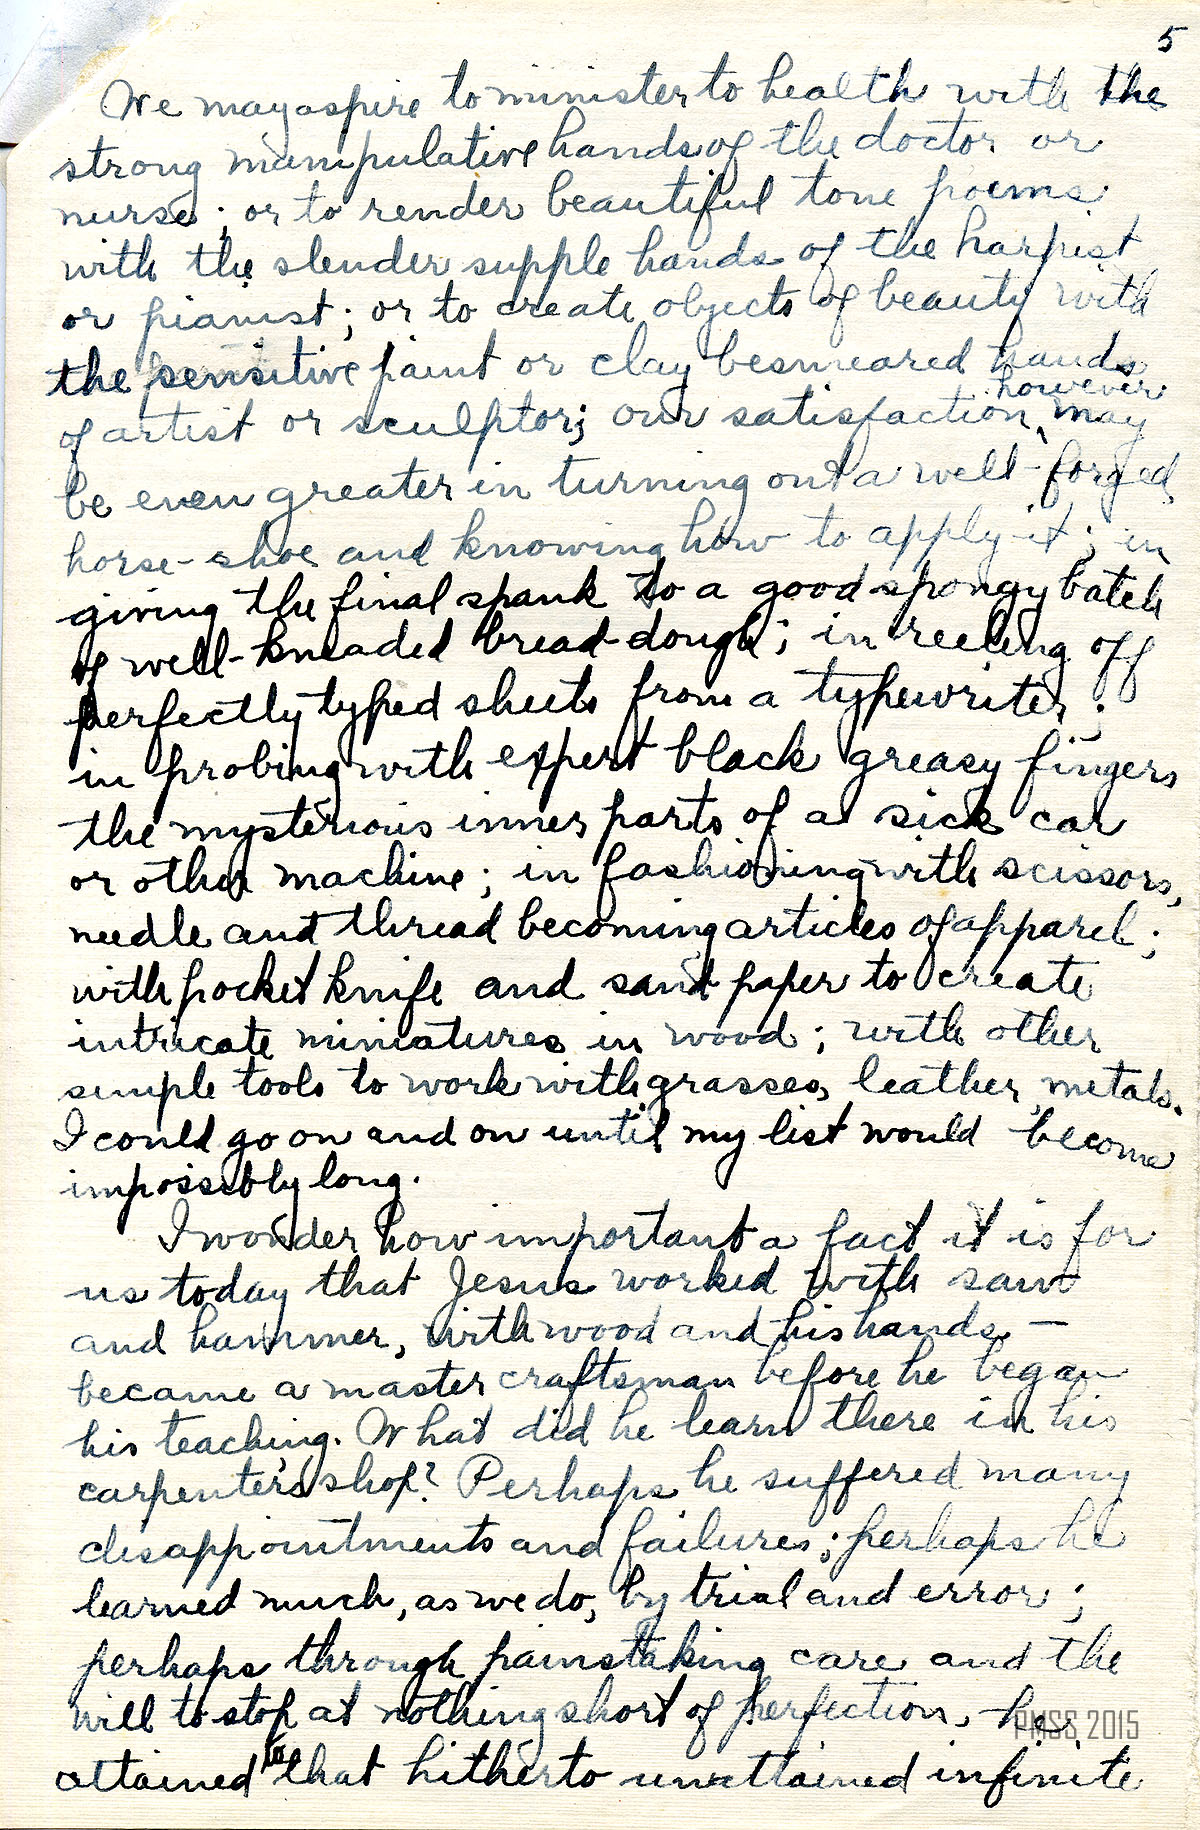 5
We may aspire to minister to health with the
strong manipulative hands of the doctor or
nurse; or to render beautiful tone poems
with the slender supple hands of the harpist
or pianist; or to create objects of beauty with
the sensitive paint or clay besmeared hands
of artist or sculptor; our satisfaction, however may
be even greater in turning out a well-forged
horse-shoe and knowing how to apply it; in
giving the final spank to a good spongy batch
of well-kneaded bread-dough; in reeling off
perfectly typed sheets from a typewriter;
in probing with expert black greasy fingers
the mysterious inner parts of a sick car
or other machine; in fashioning with scissors,
needle and thread becoming articles of apparel;
with pocket knife and sand paper to create
intricate miniatures in wood; with other
simple tools to work with grasses, leather, metals.
I could go on and on until my list would become
impossibly long.
I wonder how important a fact it is for
us today that Jesus worked with saw
and hammer, with wood and his hands, —
became a master craftsman before he began
his teaching. What did he learn there in his
carpenter's shop? Perhaps he suffered many
disappointments and failures; perhaps he
learned much, as we do, by trial and error;
perhaps through painstaking care and the
will to stop at nothing short of perfection, he
attained to that hitherto unattained infinite
PMSS 2015